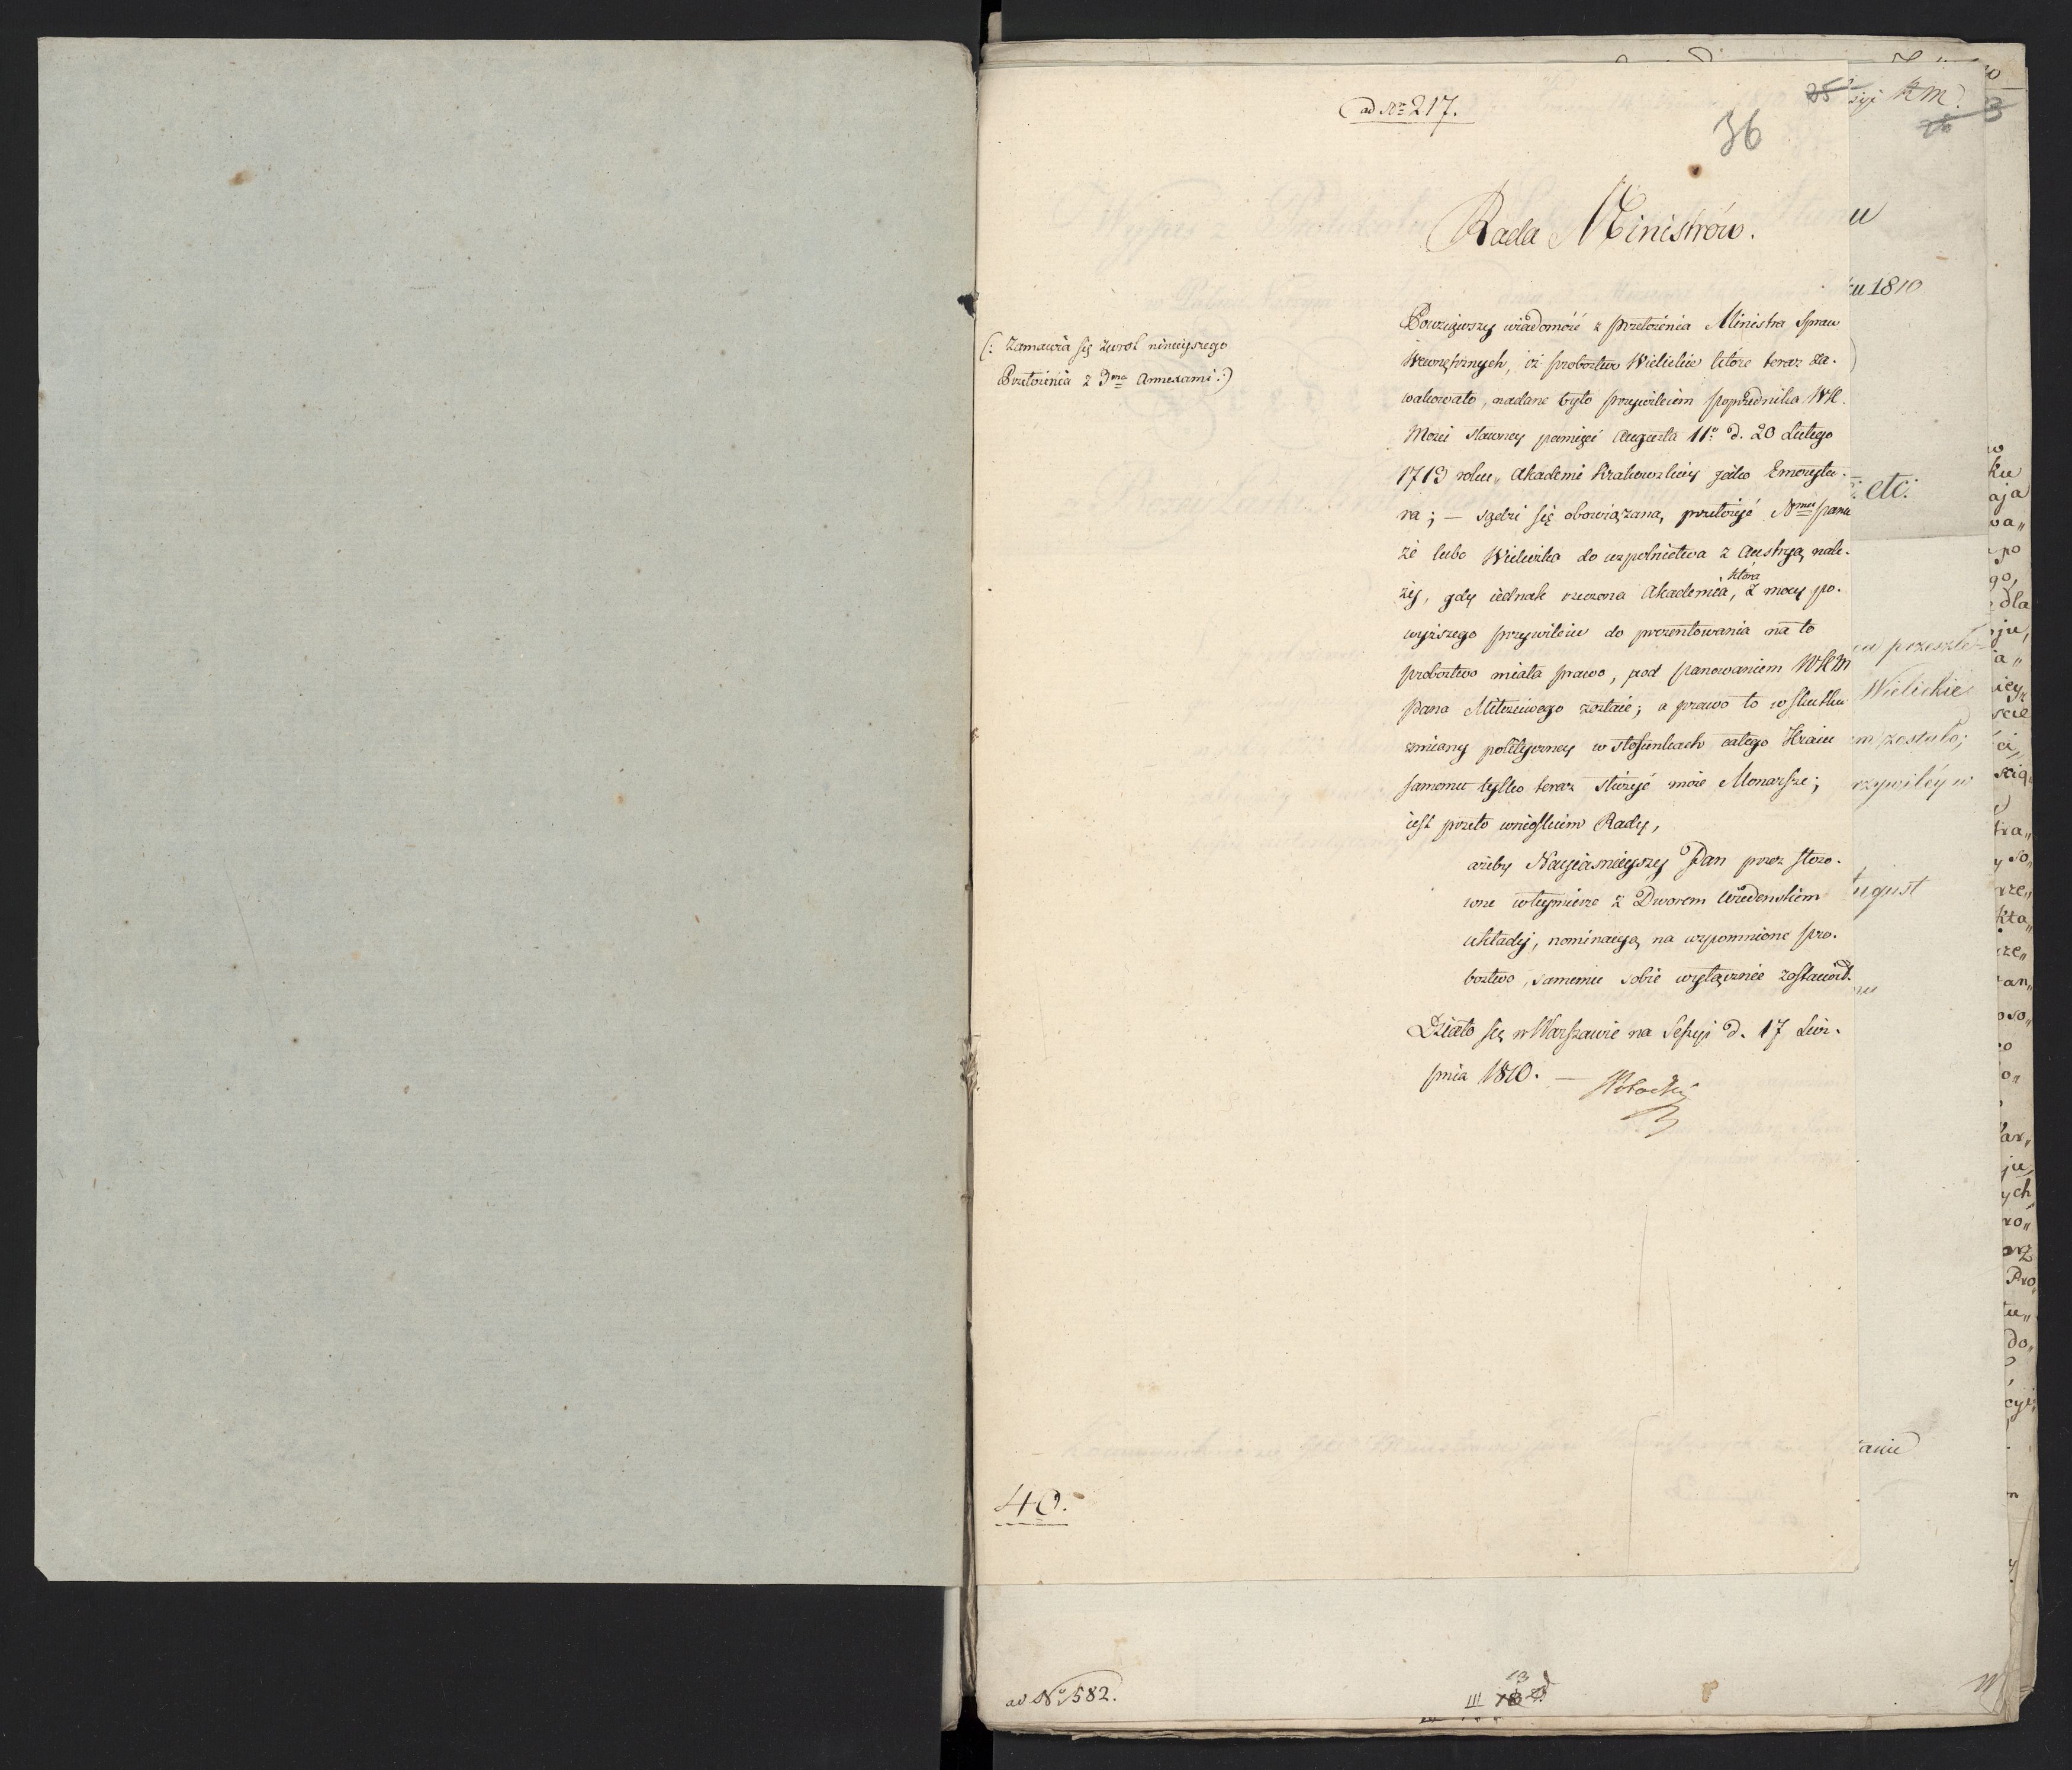 ad Nr 217.
25
36
Rada Ministrów.
(: Zamawia się zwrot ninieyszego
Przełożenia z 3ma Annexami :)
Powziąwszy wiadomość z przełożenia Ministra Spraw
Wewnętrznych, iż probostwo Wielickie które teraz za-
wakowało, nadane było przywileiem poprzednika WK.
Mości sławney pamięci Augusta IIo d. 20 Lutego
1719 roku, Akademi Krakowskiey jako Emerytu-
ra; — sądzi się obowiązaną, przełożyć Nmu panu
że lubo Wieliczka do wspolnictwa z Austryą nale-
ży, gdy iednak rzeczona Akademia, która z mocy po-
wyższego przywileiu do prezentowania na to
probostwo miała prawo, pod panowaniem WKM
Pana Miłościwego zostaie; a prawo to w skutku
zmiany polityczney w stosunkach całego Kraiu
samemu tylko teraz służyć może Monarsze;
iest przeto wnioskiem Rady,
ażeby Nayiaśnieyszy Pan przez stoso-
wne w tey mierze z Dworem Wiedeńskim
układy, nominacyą na wspomnione pro-
bostwo, samemu sobie wyłącznie zostawił.
Działo się w Warszawie na Sessyi d. 17 Sier-
pnia 1810. —
40.
ad No 582.
13
III
syi KM.
3
u
ku 1810
etc:
przeszłe
Wielickie
m zostało;
rzywiléy w
August
anie